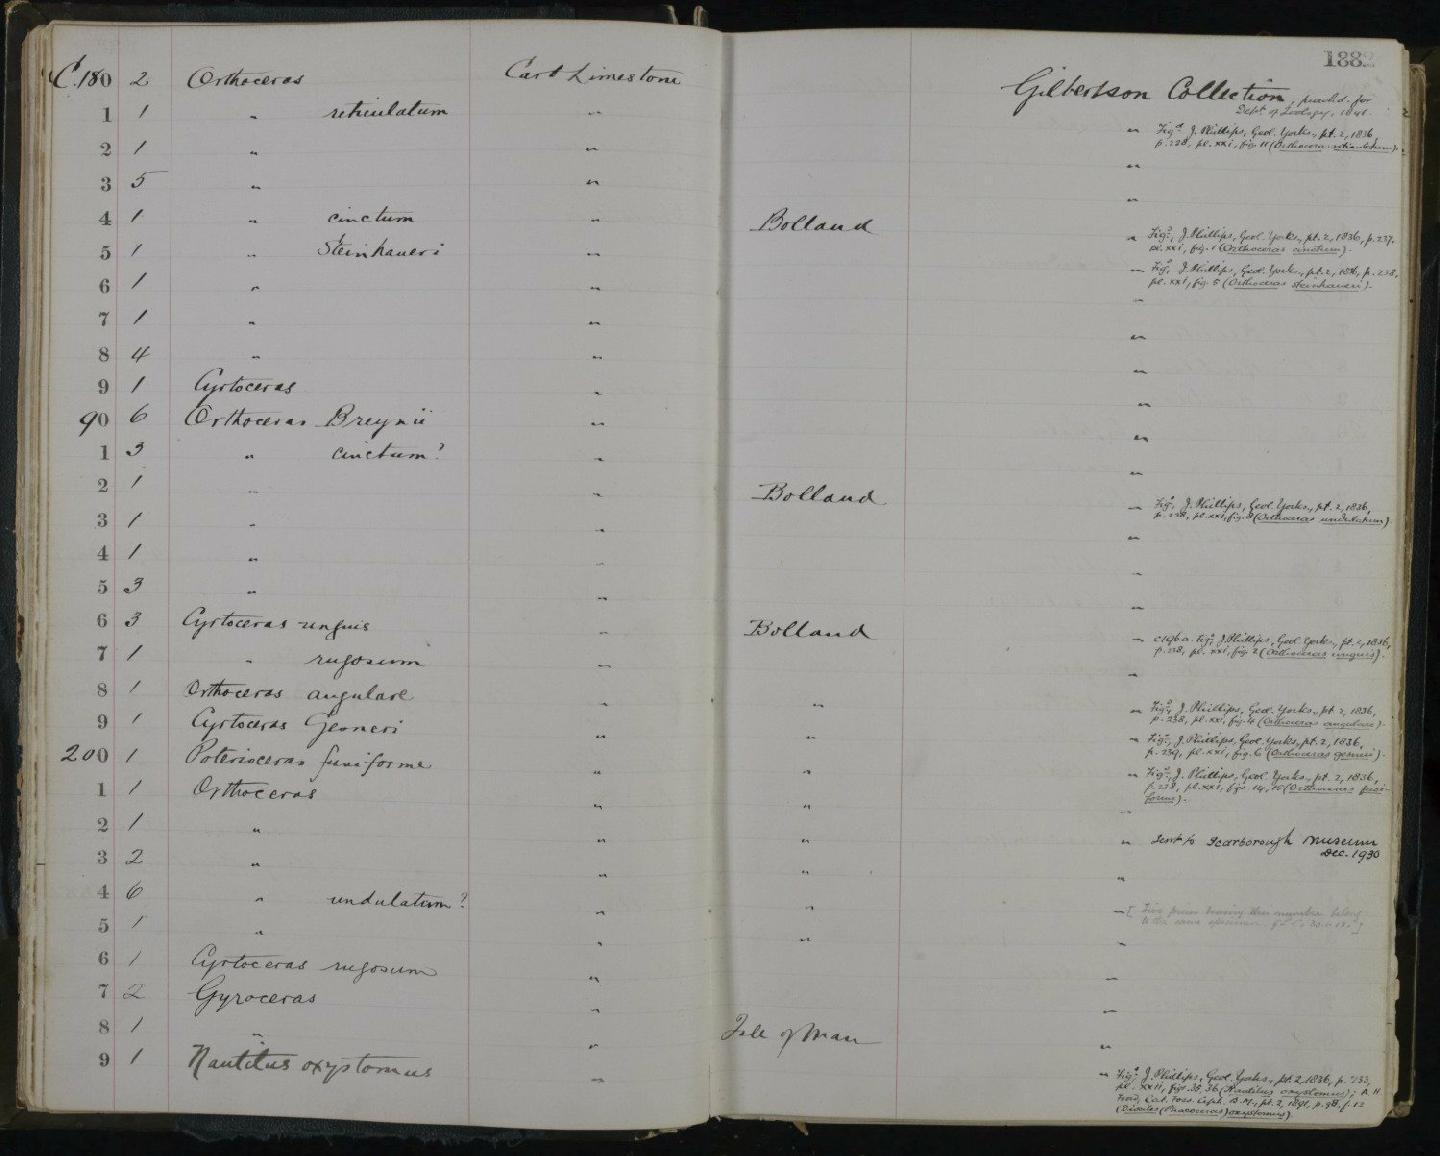 1882
C.180 2 Orthoceras Carb Limestone Gilbertson Collection, purchd. for
Dept. of Zoology, 1841.
1 1 " reticulatum " " Figd. J. Phillips, Geol. Yorks., pt. 2, 1836,
p. 238, pl. xxi, fig. 11 (Orthoceras reticulatum).
2 1 " " "
3 5 " " "
4 1 " cinctum " Bolland " Figd., J. Phillips, Geol. Yorks., pt. 2, 1836, p. 237,
pl. xxi, fig. 1 (Orthoceras cinctum).
5 1 " Steinhaueri " — Figd. J. Phillips, Geol. Yorks., pt. 2, 1836, p. 238,
pl. xxi, fig. 5 (Orthoceras steinhaueri).
6 1 " " "
7 1 " " "
8 4 " " "
9 1 Cyrtoceras " "
90 6 Orthoceras Breynii " "
1 3 " cinctum? " "
2 1 " " Bolland — Figd. J. Phillips, Geol. Yorks., pt. 2, 1836,
p. 238, pl. xxi, fig. 8 (Orthoceras undulatum)
3 1 " " "
4 1 " " "
5 3 " " "
6 3 Cyrtoceras unguis " Bolland — C196a. Figd. J. Phillips, Geol. Yorks., pt. 2, 1836,
p. 238, pl. xxi, fig. 2 (Orthoceras unguis).
7 1 " rugosum " "
8 1 Orthoceras angulare " " " Figd., J. Phillips, Geol. Yorks., pt 2, 1836,
p. 238, pl. xxi, fig. 4 (Orthoceras angulare).
9 1 Cyrtoceras Gesneri " " " Figd., J. Phillips, Geol. Yorks., pt. 2, 1836,
p. 239, pl. xxi, fig. 6 (Orthoceras gesneri).
200 1 Poterioceras fusiforme " " " Figd., J. Phillips, Geol. Yorks., pt. 2, 1836,
p. 238, pl. xxi, figs. 14, 15 (Orthoceras fusi-
forme).
1 1 Orthoceras " " "
2 1 " " " " Sent to Scarborough Museum
Dec. 1930
3 2 " " " "
4 6 " undulatum? " " — [ Five pieces bearing this number belong
to the same specimen
5 1 " " "
6 1 Cyrtoceras rugosum " —
7 2 Gyroceras " "
8 1 " " Isle of Man "
9 1 Nautilus oxystomus " " Figd. J. Phillips, Geol. Yorks., pt. 2, 1836, p. 233,
pl. xxii, figs. 35, 36 (Nautilus oxystomus); A. H.
Foord, Cat. Foss. Ceph. B.M., pt. 2, 1891, p. 98, f. 12
(Discites (Phacoceras) oxystomus).